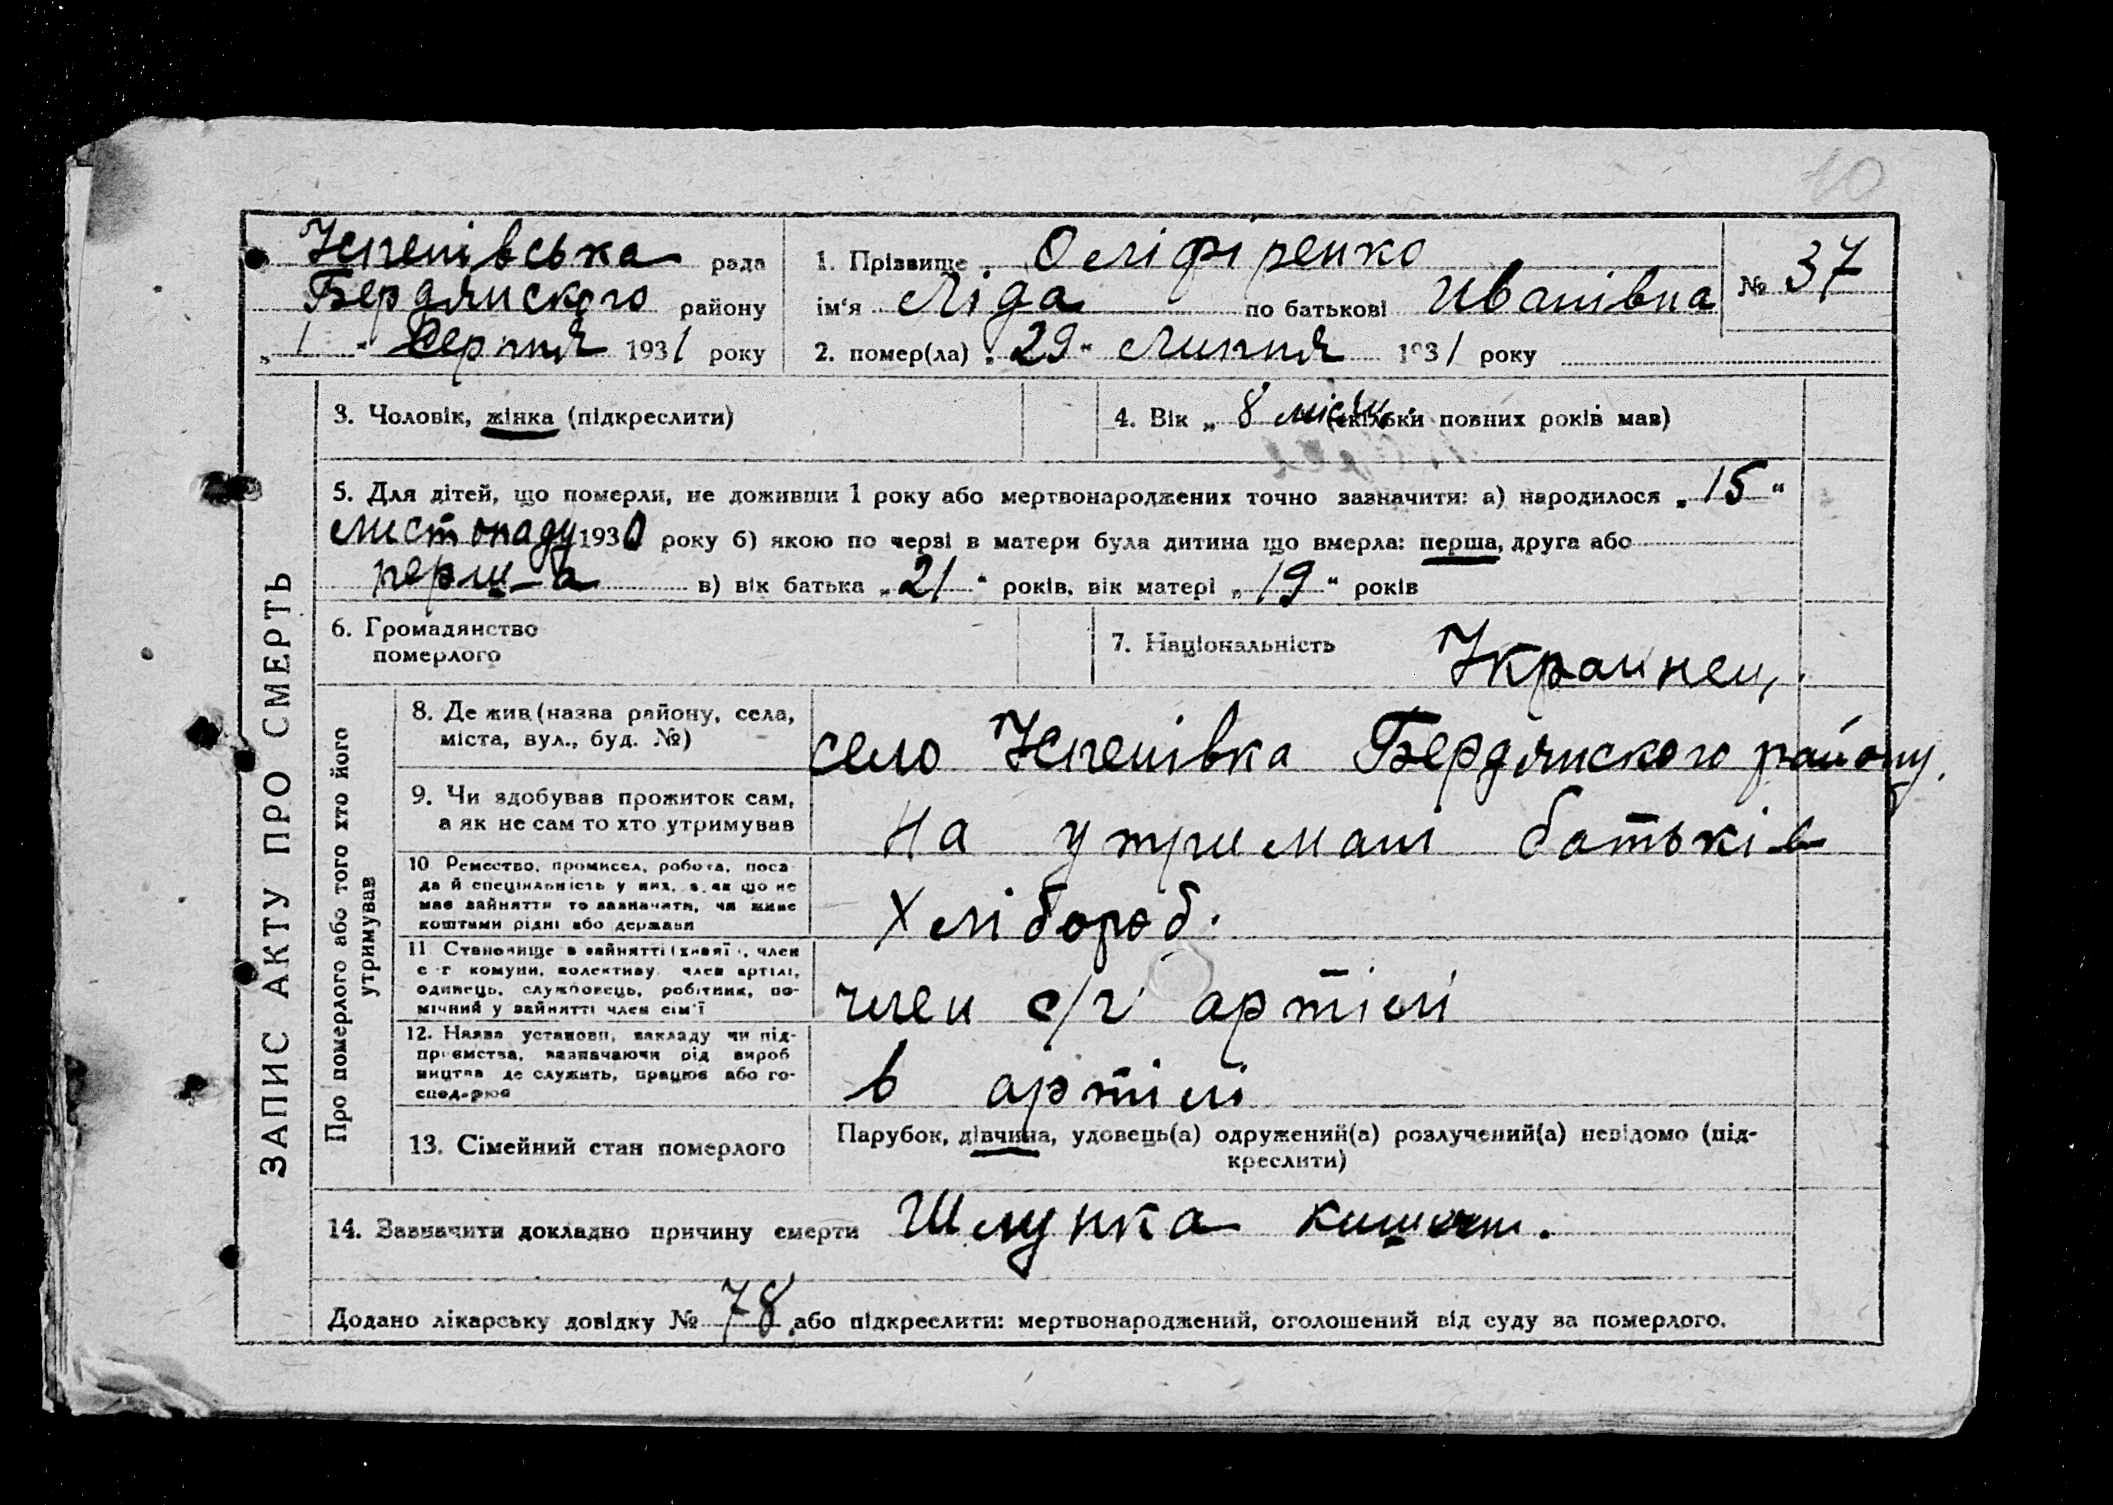 10
Успенівська рада
Бердянского району
„ 1 " Серпня 1931 року
1. Прізвище Оліфіренко
ім'я Ліда по батькові Иванівна
№ 37
2. помер(ла) „ 29 " Липня 1931 року
ЗАПИС АКТУ ПРО СМЕРТЬ
3. Чоловік, жінка (підкреслити)
4. Вік „ 8 місяц. (скільки повних років мав)
5. Для дітей, що померли, не доживши 1 року або мертвонароджених точно зазначити: а) народилося „ 15 "
листопаду 1930 року б) якою по черзі в матери була дитина що вмерла: перша, друга або
перш-а в) вік батька „ 21 " років, вік матері „ 19 " років
6. Громадянство
померлого
7. Національність Украинец,
Про померлого або того хто його
утримував
8. Де жив (назва району, села,
міста, вул., буд. №)
село Успенівка Бердянского району.
9. Чи здобував прожиток сам,
а як не сам то хто утримував
На утримані батьків
10 Ремество, промисел, робота, поса-
да й спеціяльність у них, а як що не
має зайняття то зазначити, чи живе
коштами рідні або держави
Хлібороб.
11 Становище в зайнятті (хазяї, член
с-г комуни, колективу, член артілі,
одинець, службовець, робітник, по-
мічний у зайнятті член сім'ї
член с/г артілі
12. Назва установи, закладу чи під-
приємства, зазначаючи рід вироб
ництва де служить, працює або го-
сподарює
в артілі
13. Сімейний стан померлого
Парубок, дівчина, удовець(а) одружений(а) розлучений(а) невідомо (під-
креслити)
14. Зазначити докладно причину смерти Шлунка кишочн.
Додано лікарську довідку № 78, або підкреслити: мертвонароджений, оголошений від суду за померлого.